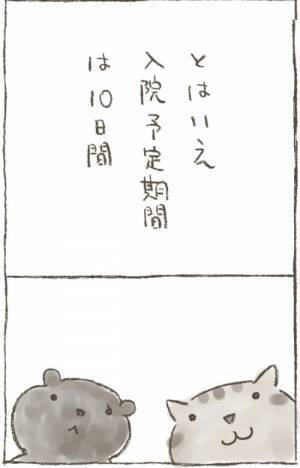 とはいえ
入院予定期間
は10日間